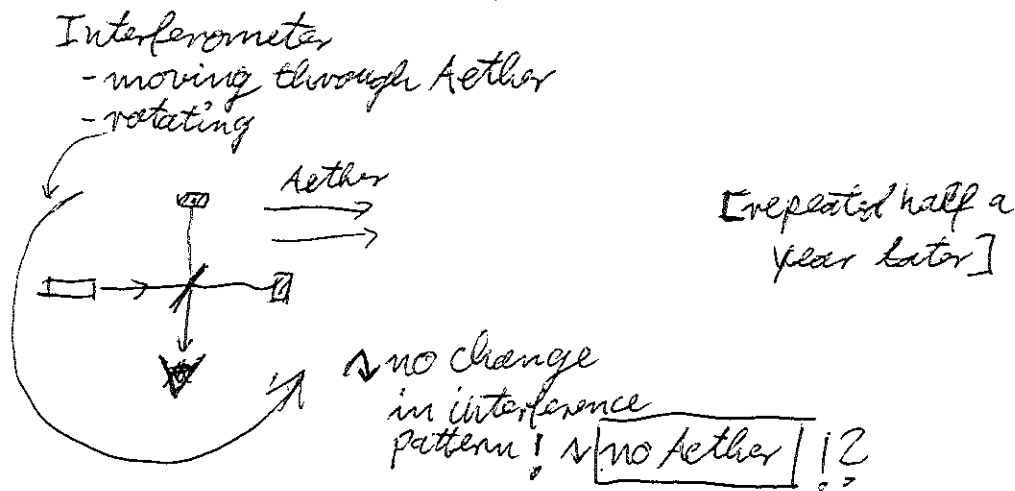 Interferometer
- moving through Aether
- rotating
Aether
[repeated half a
year later]
no change
in interference
pattern! no Aether !?